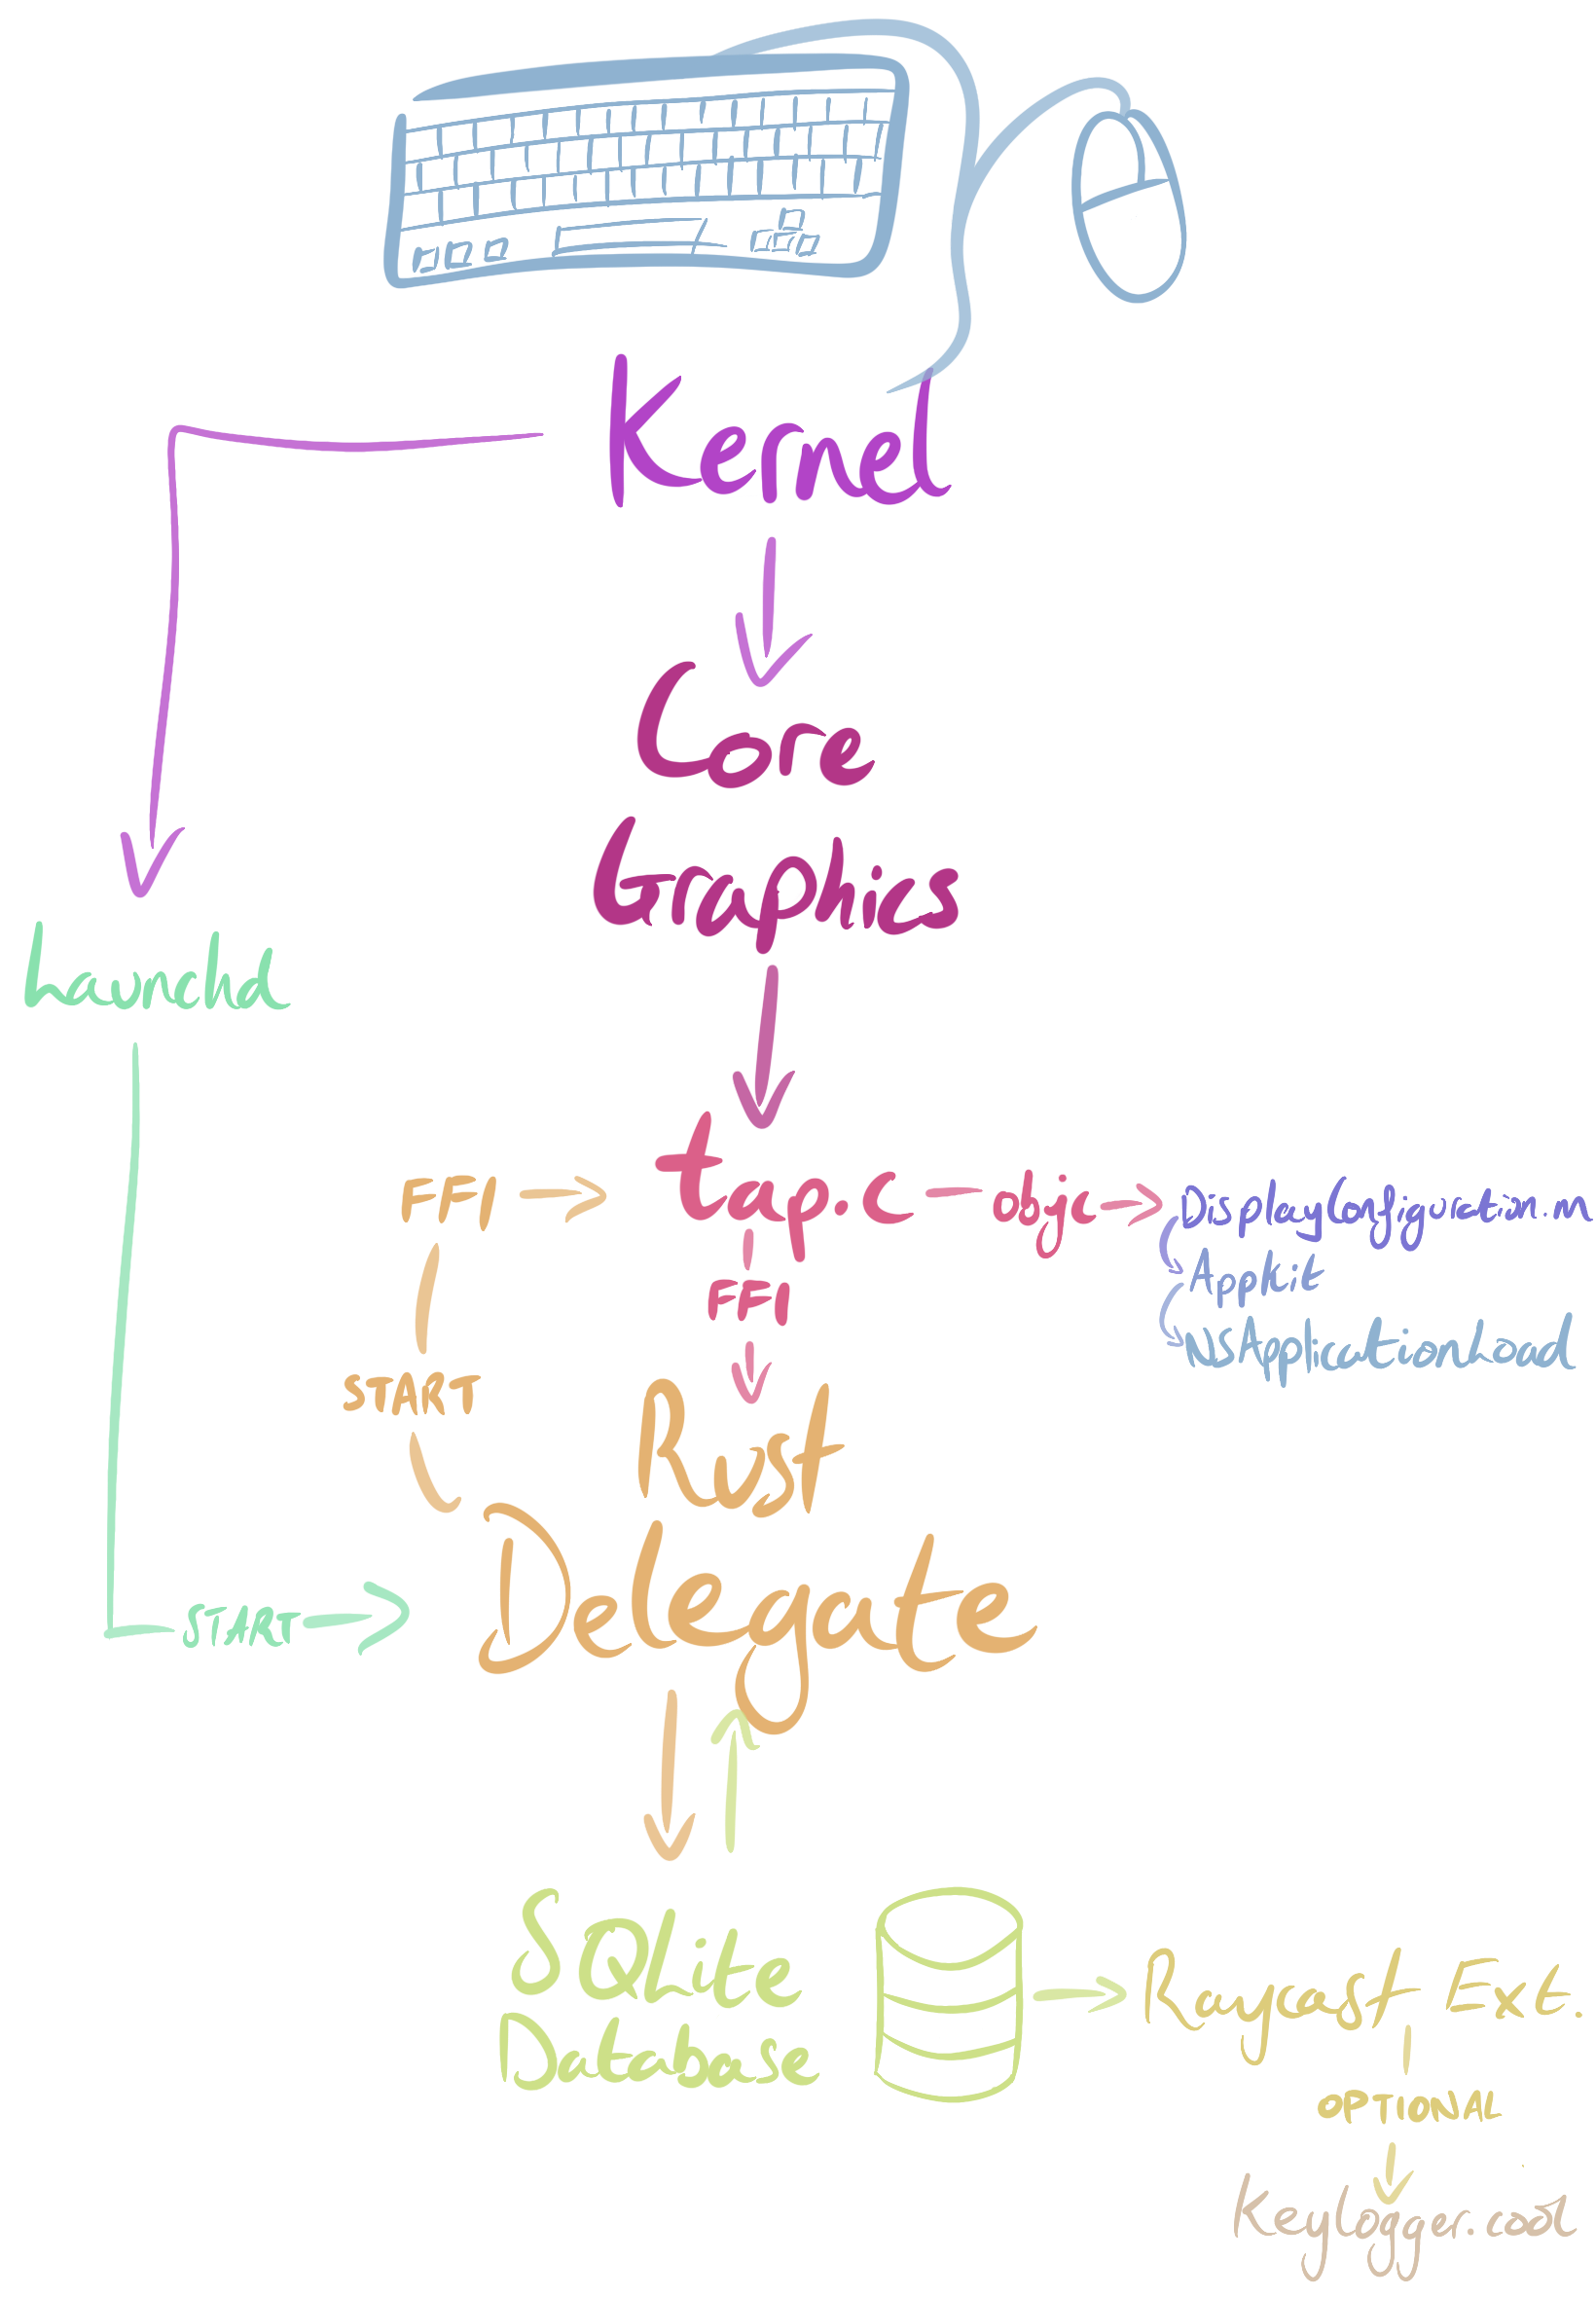 Kernel
Core
Graphics
Launchd
FFI
tap.c
objc
DisplayConfiguration.m
AppKit
NSApplicationLoad
FFI
START
Rust
Delegate
START
SQlite
Database
Raycast Ext.
OPTIONAL
Keylogger.cool